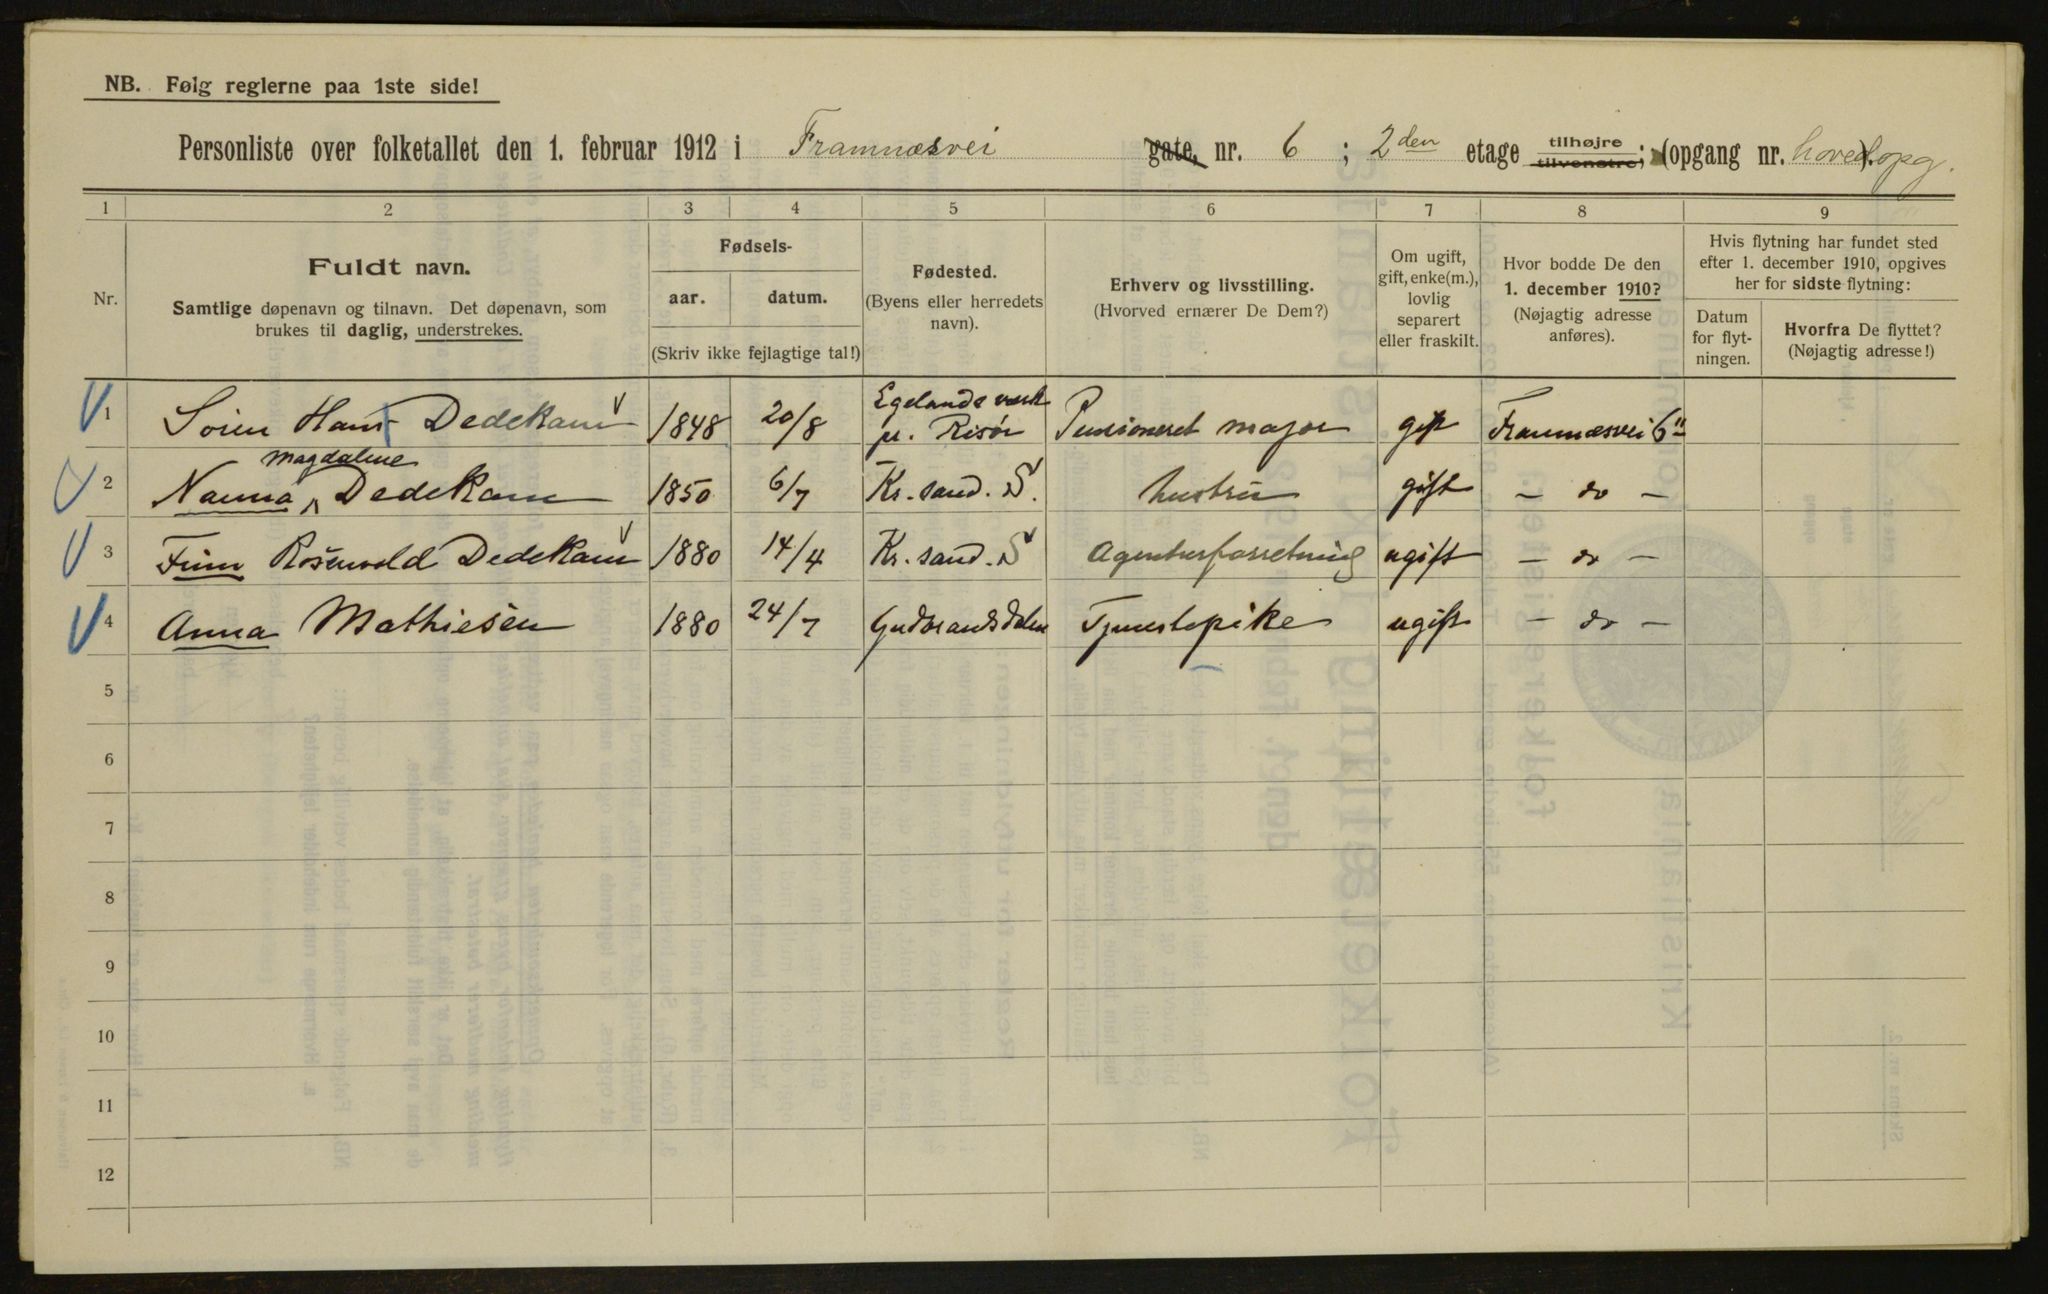 NB. Følg reglerne paa 1ste side!
Personliste over folketallet den 1. februar 1912 i Framnæsvei gate, nr. 6 ; 2den etage tilhøjre tilvenstre; (opgang nr. hovedopg.
1 2 3 4 5 6 7 8 9
Nr.
Fuldt navn.
Samtlige døpenavn og tilnavn. Det døpenavn, som
brukes til daglig, understrekes.
Fødsels-
aar. datum.
(Skriv ikke fejlagtige tal!)
Fødested.
(Byens eller herredets
navn).
Erhverv og livsstilling.
(Hvorved ernærer De Dem?)
Om ugift,
gift, enke(m.),
lovlig
separert
eller fraskilt.
Hvor bodde De den
1. december 1910?
(Nøjagtig adresse
anføres).
Hvis flytning har fundet sted
efter 1. december 1910, opgives
her for sidste flytning:
Datum
for flyt-
ningen.
Hvorfra De flyttet?
(Nøjagtig adresse!)
1 Sören Hans Dedekam 1848 20/8 Egelands værk pr. Risør Pensioneret major gift Framnæsvei 6 II
2 Nanna Magdalene Dedekam 1850 6/7 Kr. sand. S. hustru gift - do -
3 Finn Rosenvold Dedekam 1880 14/4 Kr. sand. S Agenturforretning ugift - do -
4 Anna Mathiesen 1880 24/7 Gudbrandsdalen Tjenestepike ugift - do -
5
6
7
8
9
10
11
12